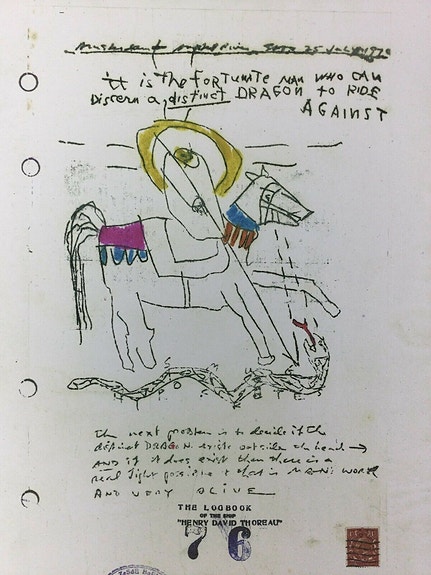 it is the FORTUNATE MAN WHO CAN
DISCERN a distinct DRAGON to RIDE
AGAINST
the next problem is to decide if the
distinct DRAGON exists outside the head
AND if it does exist then there is a
real fight possible & that is MANS WORK
AND VERY ALIVE
THE LOGBOOK
OF THE SHIP
"HENRY DAVID THOREAU"
76